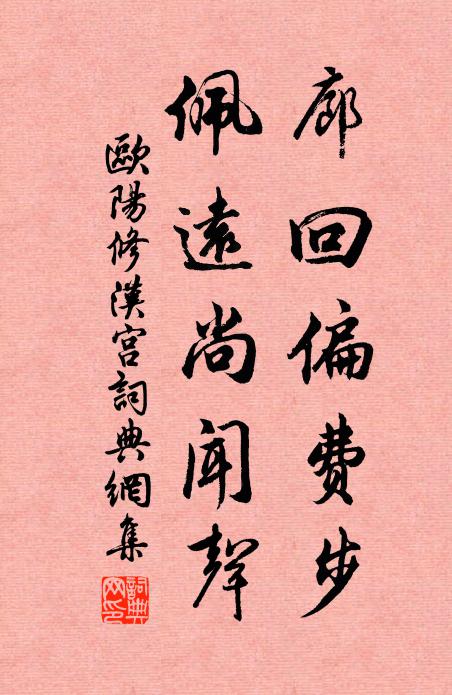 廊回偏费步
佩遠尚聞聲
歐陽修漢宮詞典網集
詞典網印